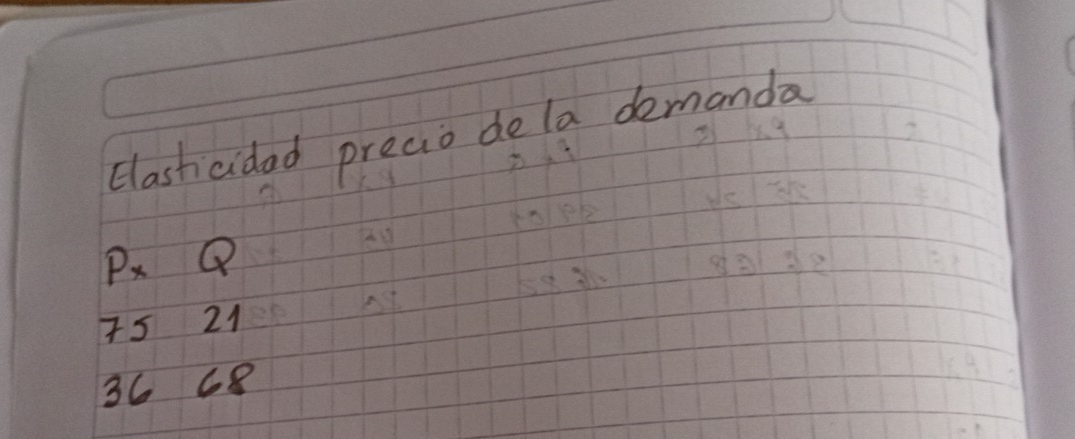 Elasticidad precio de la demanda
Px Q
75 21
36 68